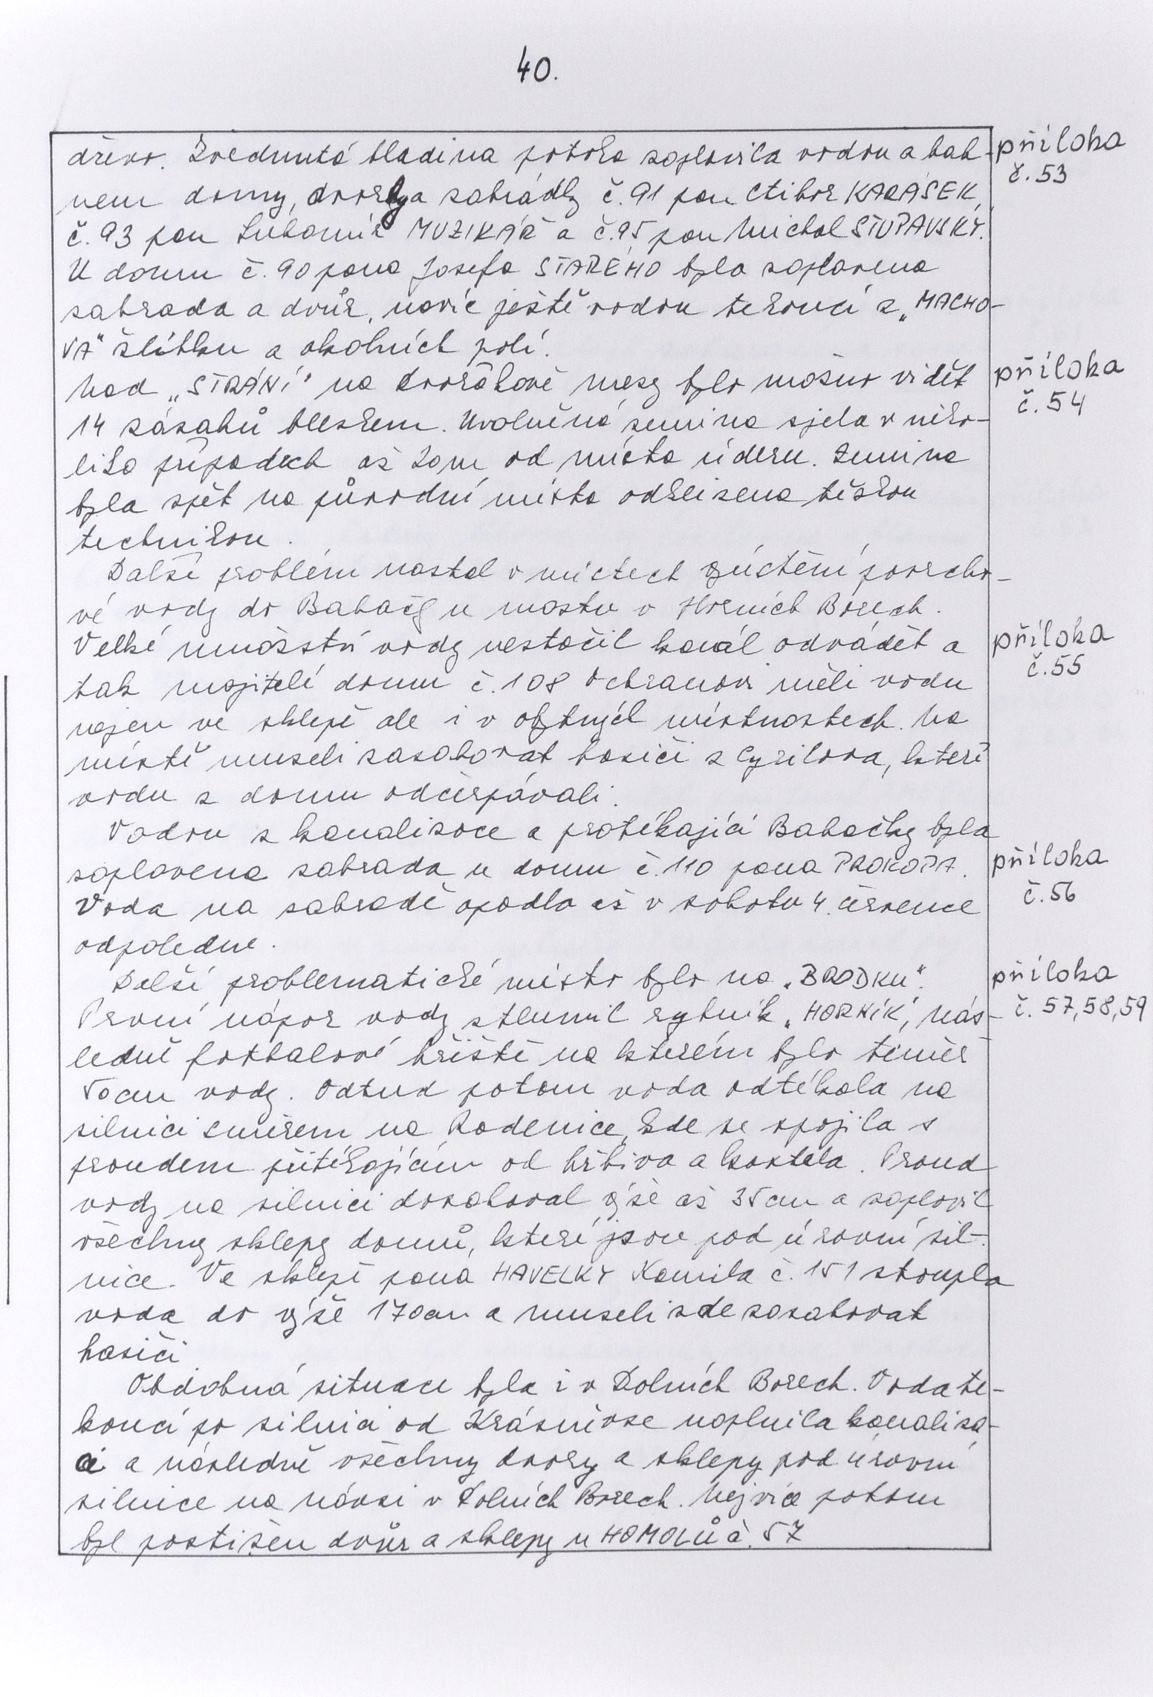 40.
dřevo. Zvednutá hladina potoka zaplavila vodou a bah-
nem domy, dvory a zahrádky č.91 pan Ctibor KARÁSEK,
č.93 pan Lubomír MUZIKÁŘ a č.95 pan Michal STUPAVSKÝ.
U domu č.90 pana Josefa STARÉHO byla zaplavena
zahrada a dvůr, navíc ještě vodou tekoucí z „MACHO-
VA" žlíbku a okolních polí.
příloha
č.53
Nad „STRÁNÍ" na Dvořákově mezy bylo možno vidět
14 zásahů bleskem. Uvolněná zemina sjela v něko-
lika případech až 20m od místa úderu. Zemina
byla zpět na původní místo odklizena těžkou
technikou.
příloha
č.54
Další problém nastal v místech vyústění povrcho-
vé vody do Babačky u mostu v Horních Borech.
Velké množství vody nestačil kanál odvádět a
tak majitelé domu č.108 Ochranovi měli vodu
nejen ve sklepě ale i v obytných místnostech. Na
místě museli zasahovat hasiči z Cyrilova, kteří
vodu z domu odčerpávali.
příloha
č.55
Vodou z kanalizace a protékající Babačky byla
zaplavena zahrada u domu č.110 pana PROKOPA.
Voda na zahradě opadla až v sobotu 4. července
odpoledne.
příloha
č.56
Další problematické místo bylo na „BRODKU".
První nápor vody ztlumil rybník „HORNÍK", nás-
ledně fotbalové hřiště na kterém bylo téměř
50cm vody. Odtud potom voda odtékala na
silnici směrem na Rodenice, kde se spojila s
proudem přitékajícím od hřbitova a kostela. Proud
vody na silnici dosahoval výše až 35cm a zaplavil
všechny sklepy domů, které jsou pod úrovní sil-
nice. Ve sklepě pana HAVELKY Kamila č.151 stoupla
voda do výše 170cm a museli zde zasahovat
hasiči
příloha
č. 57,58,59
Obdobná situace byla i v Dolních Borech. Voda te-
koucí po silnici od Krásněvse naplnila kanaliza-
ci a následně všechny dvory a sklepy pod úrovní
silnice na návsi v Dolních Borech. Nejvíce potom
byl postižen dvůr a sklepy u HOMOLŮ č. 57